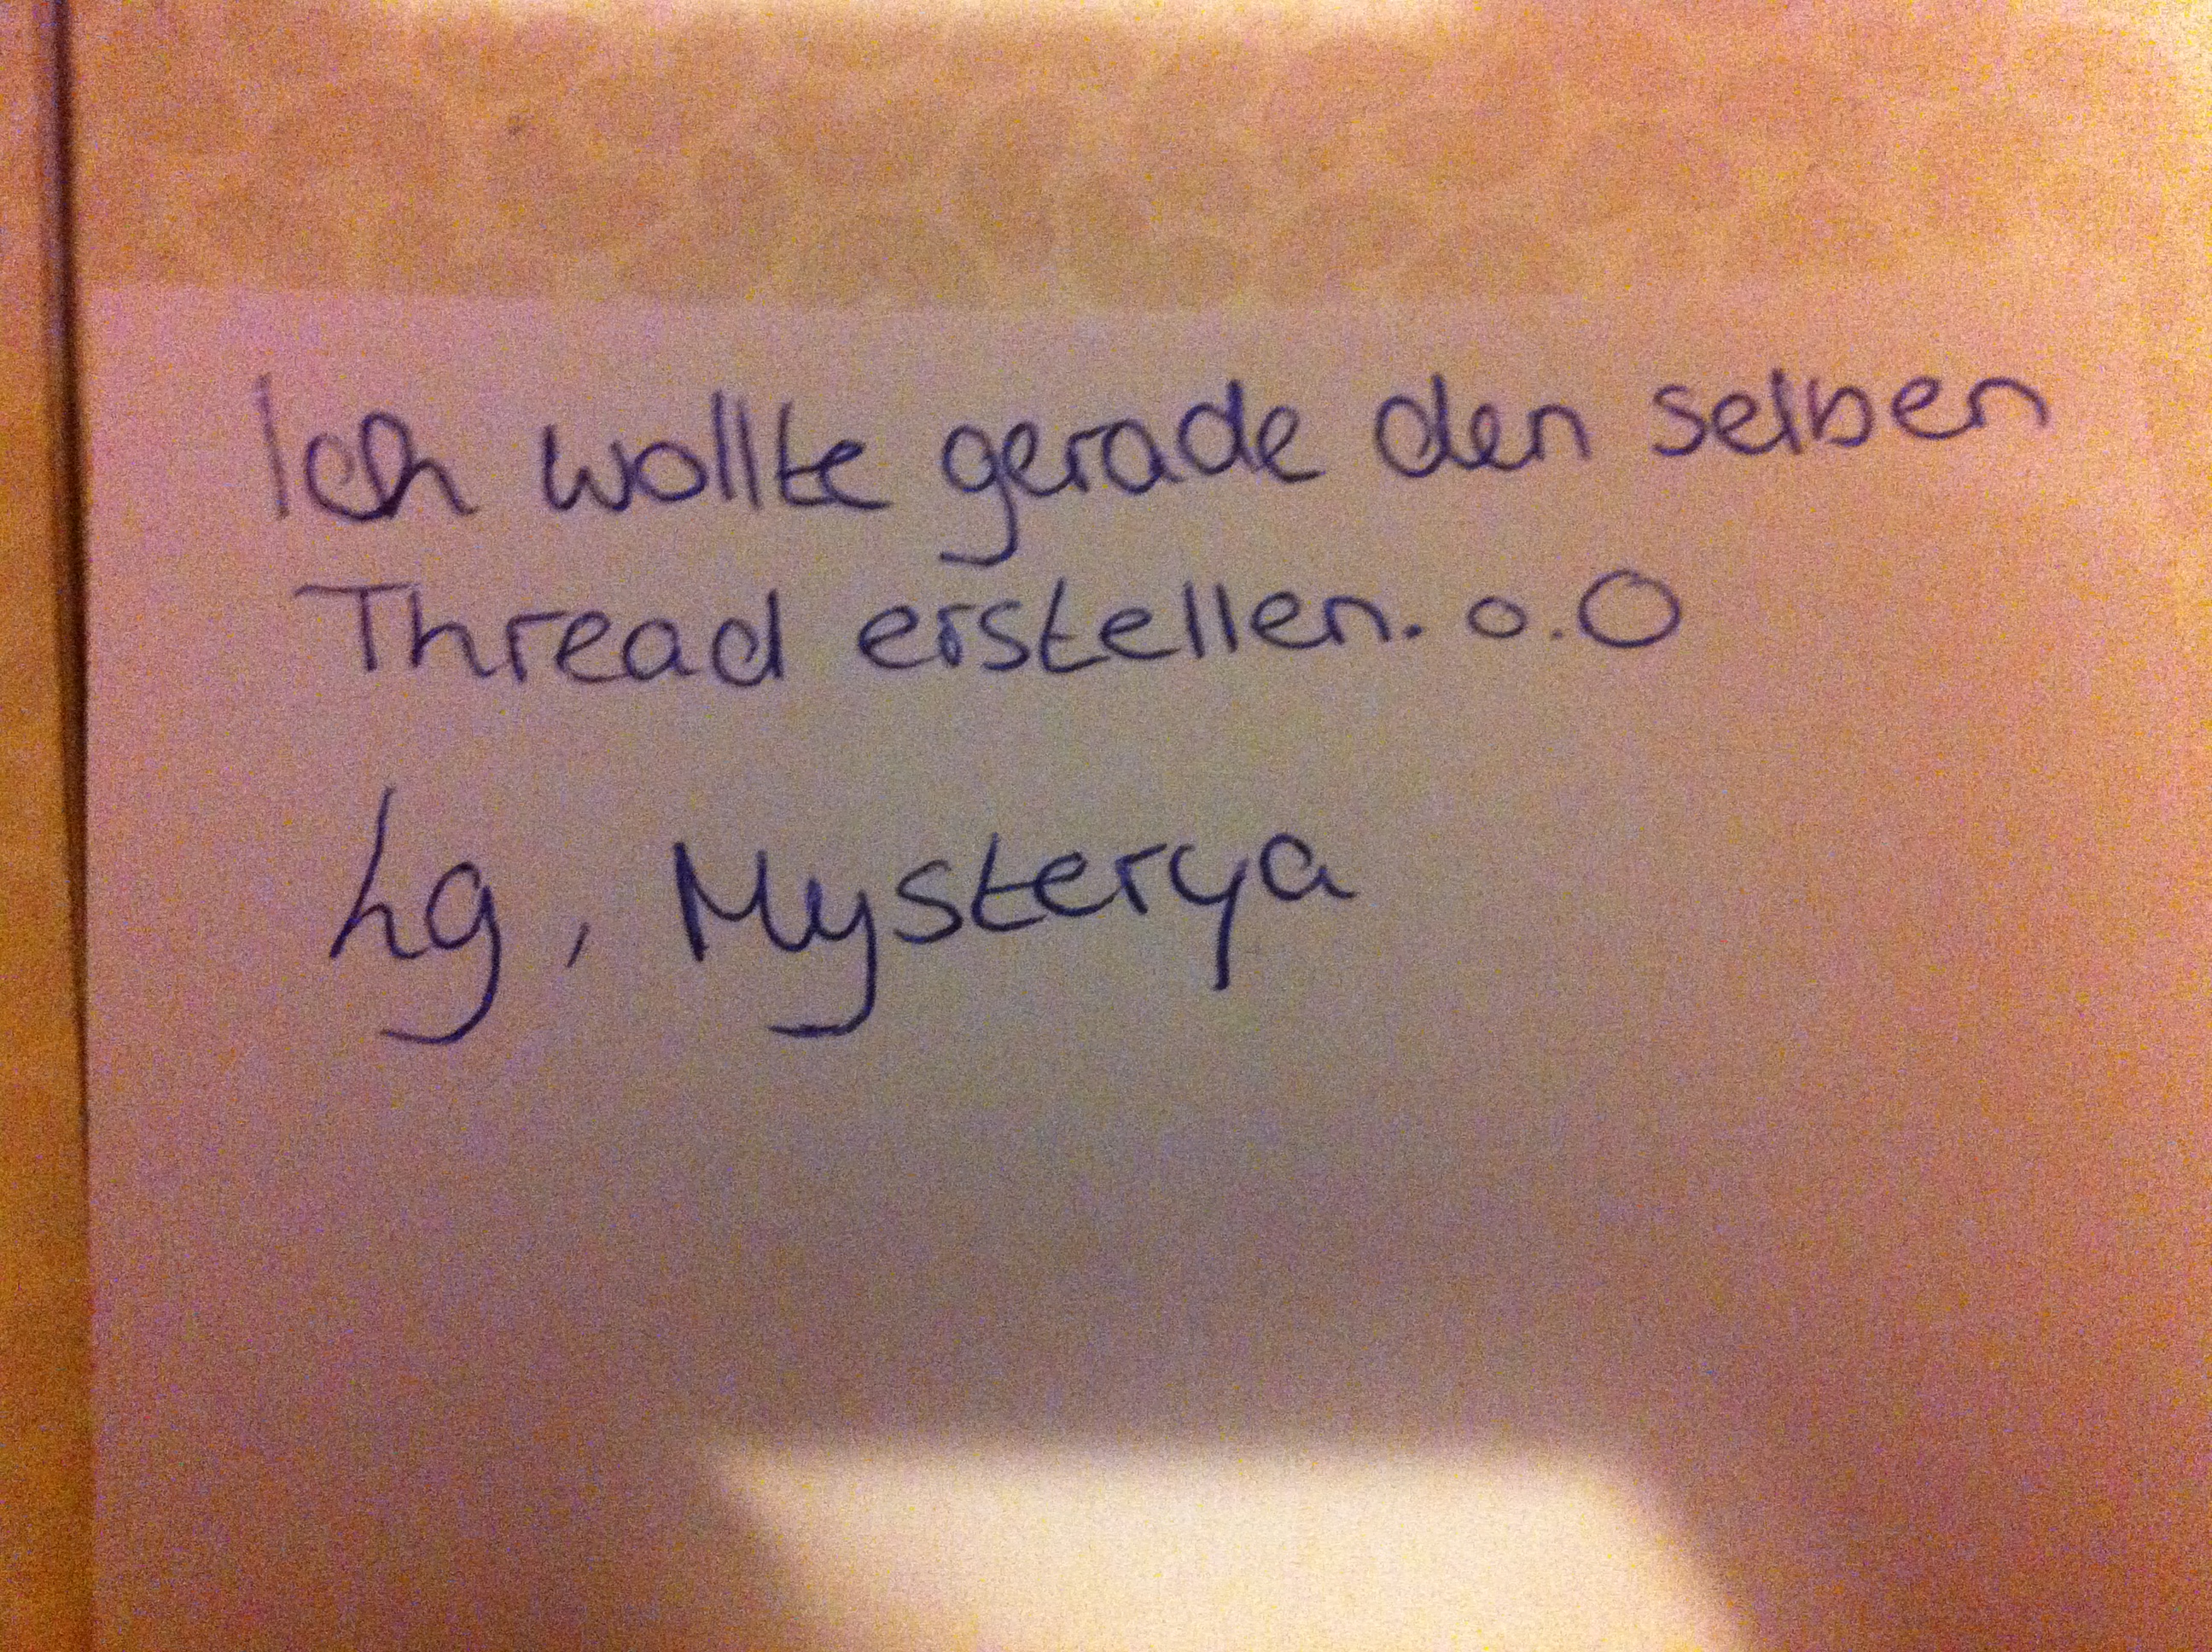 Ich wollte gerade den selben
Thread erstellen. o.O
Lg, Mysterya